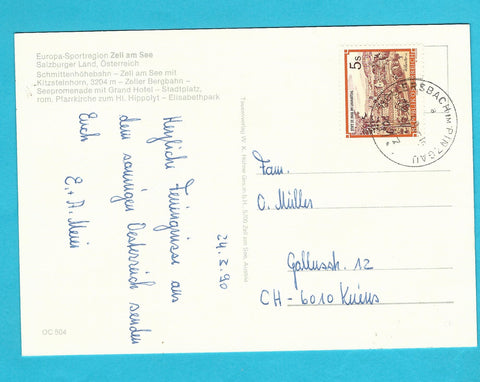 Europa-Sportregion Zell am See
Salzburger Land, Österreich
Schmittenhöhebahn – Zell am See mit
Kitzsteinhorn, 3204 m – Zeller Bergbahn –
Seepromenade mit Grand Hotel – Stadtplatz,
rom. Pfarrkirche zum Hl. Hippolyt – Elisabethpark
Herzliche Feriengrüsse aus
dem sonnigen Oesterreich senden
Euch
E. + A. Meier
24.2.90
OC 504
5700 Zell am See, Austria
5s
IM PINZGAU
Fam.
O. Müller
Gallusstr. 12
CH-6010 Kriens